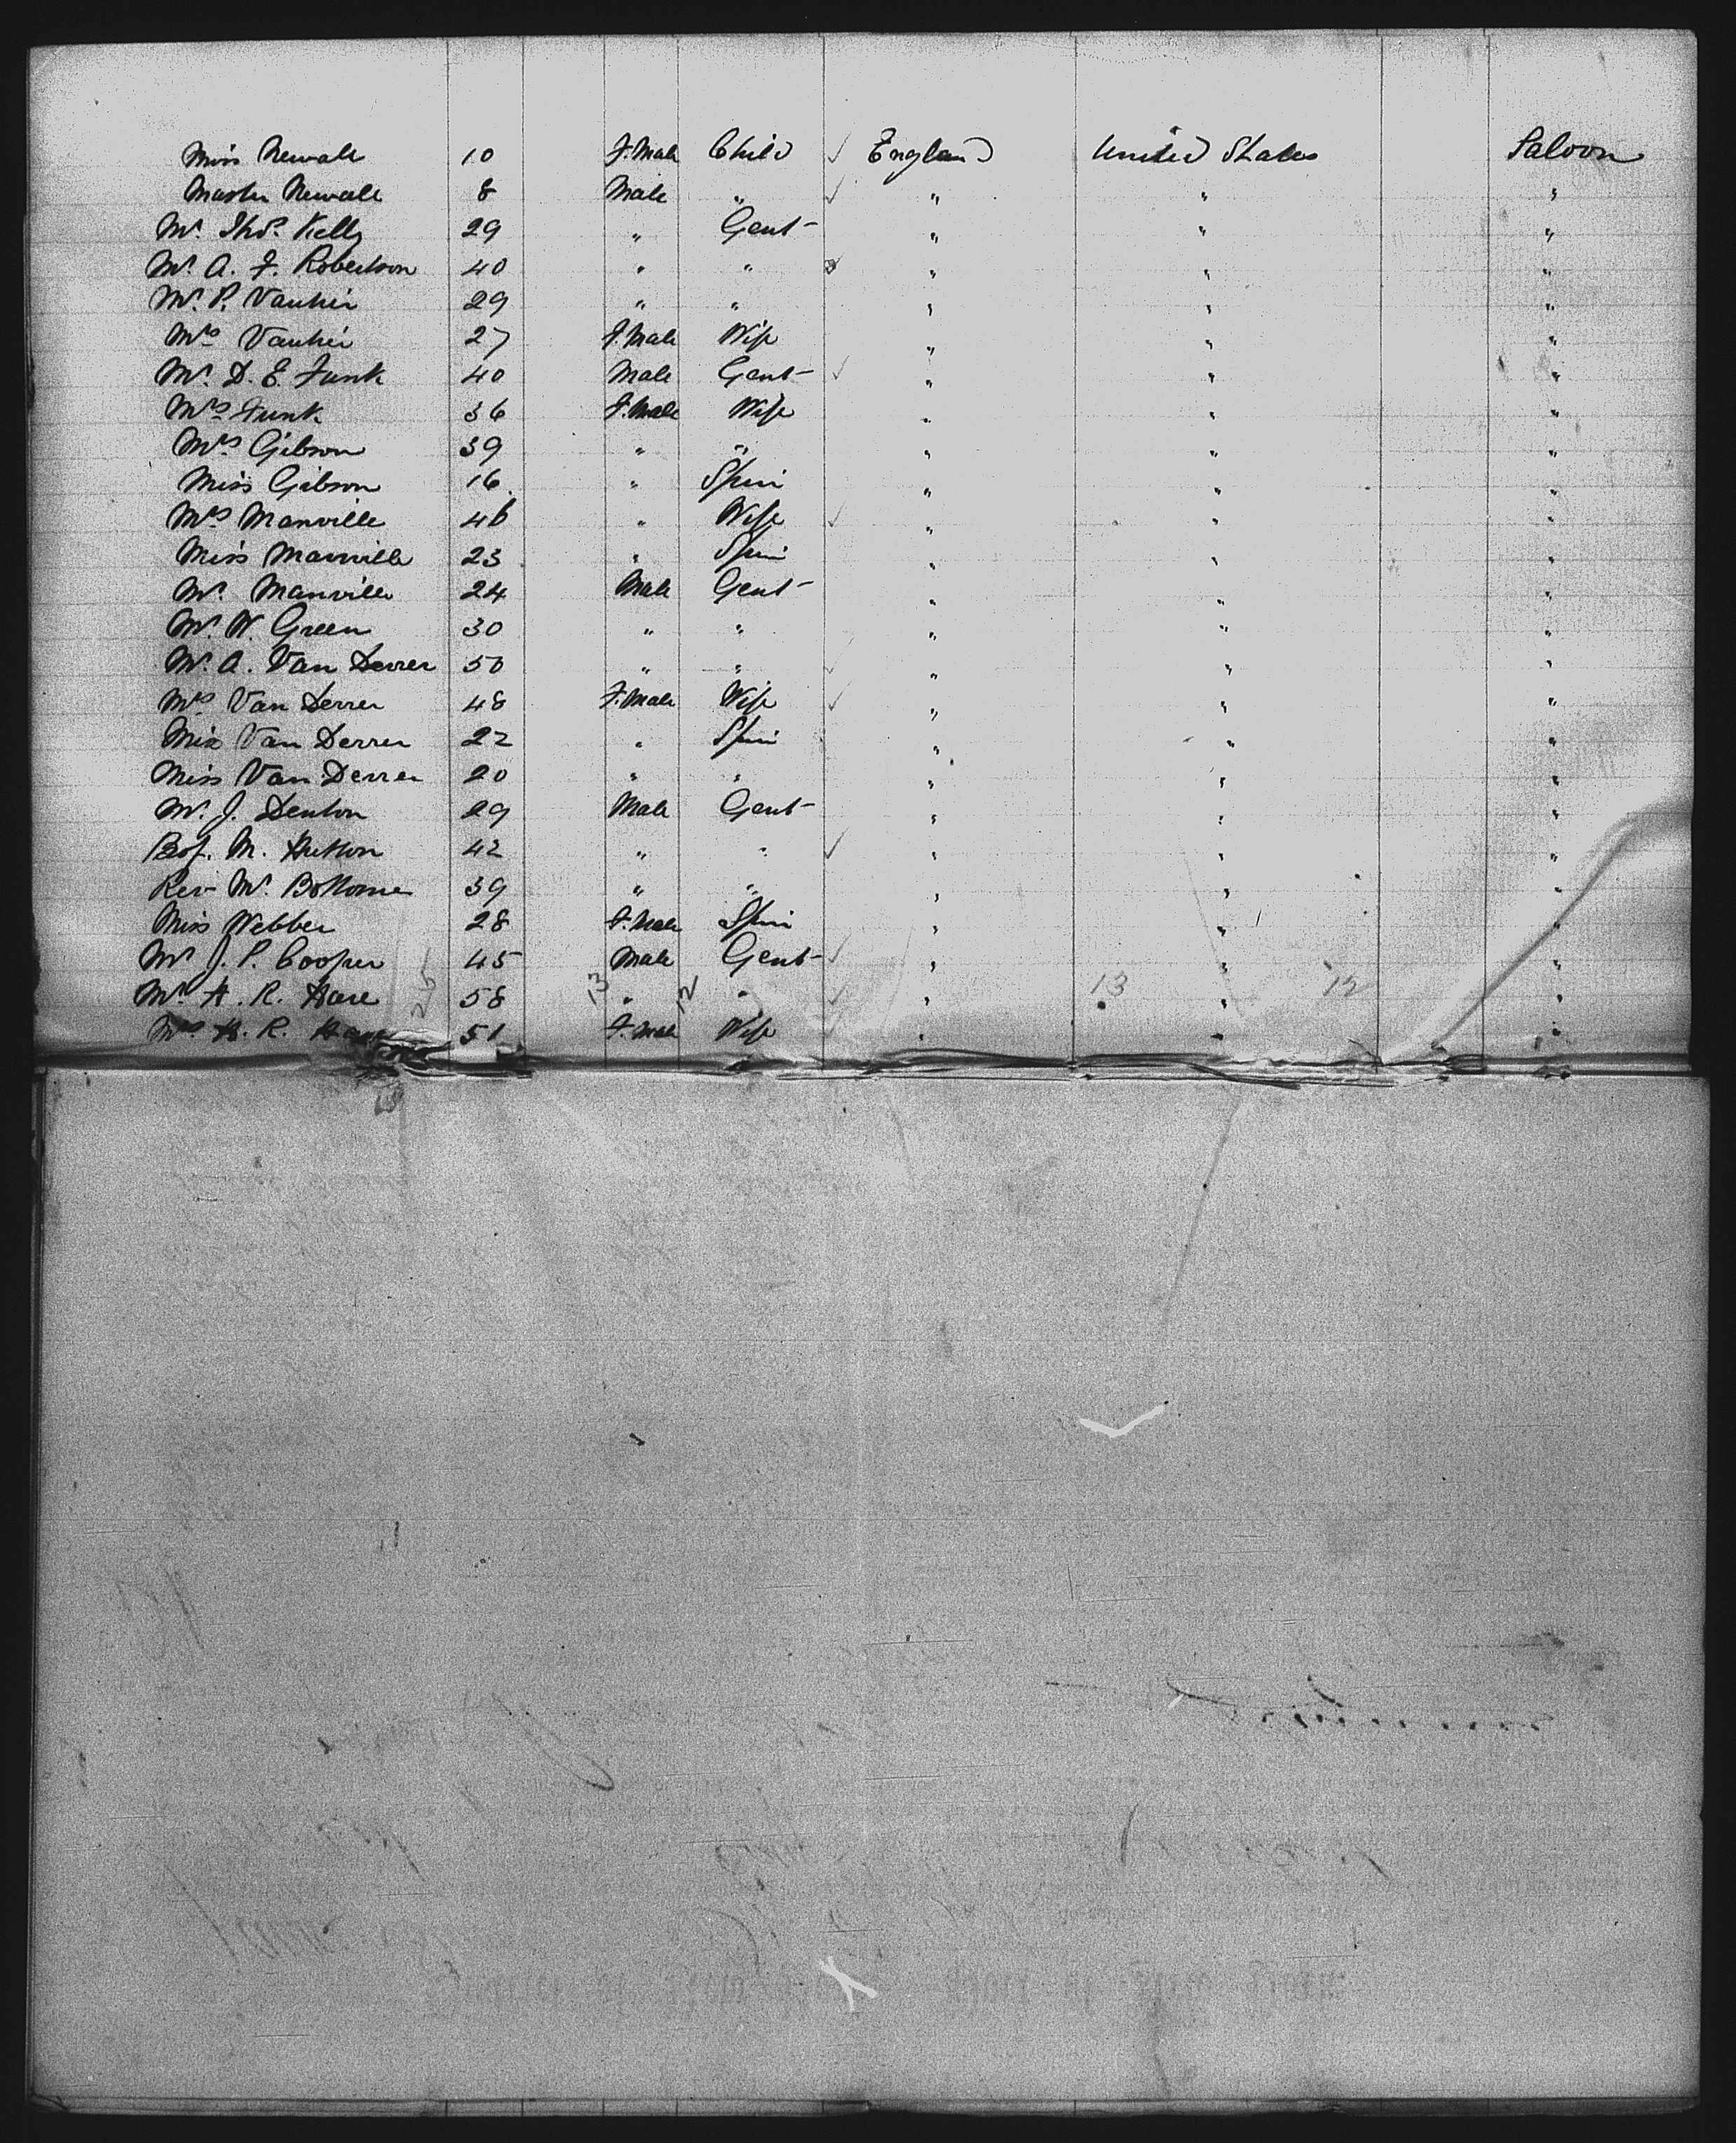 Miss Newall 10 F.Male Child England United States Saloon
Master Newall 8 Male " " " "
Mr. Thos. Kelly 29 " Gent " " "
Mr. A. F. Robertson 40 " " " " "
Mr. P. Vauhier 29 " " " " "
Mrs Vauhier 27 F.Male Wife " " "
Mr. D. E. Funk 40 Male Gent " " "
Mrs Funk 36 F.Male Wife " " "
Mrs Gibson 39 " " " " "
Miss Gibson 16 " Spin " " "
Mrs Manville 46 " Wife " " "
Miss Manville 23 " Spin " " "
Mr. Manville 24 Male Gent " " "
Mr. W. Green 30 " " " " "
Mr. A. Van Derrer 50 " " " " "
Mrs Van Derrer 48 F.Male Wife " " "
Miss Van Derrer 22 " Spin " " "
Miss Van Derrer 20 " " " " "
Mr. J. Denton 29 Male Gent " " "
Prof. M. Hutton 42 " " " " "
Rev Mr. Bottome 39 " " " " "
Miss Webber 28 F.Male Spin " " "
Mr J. P. Cooper 45 Male Gent " " "
Mr. H. R. Hare 58 " " " " "
25 13 12 13 12
Mrs H. R. Hare 51 F.Male Wife " " "